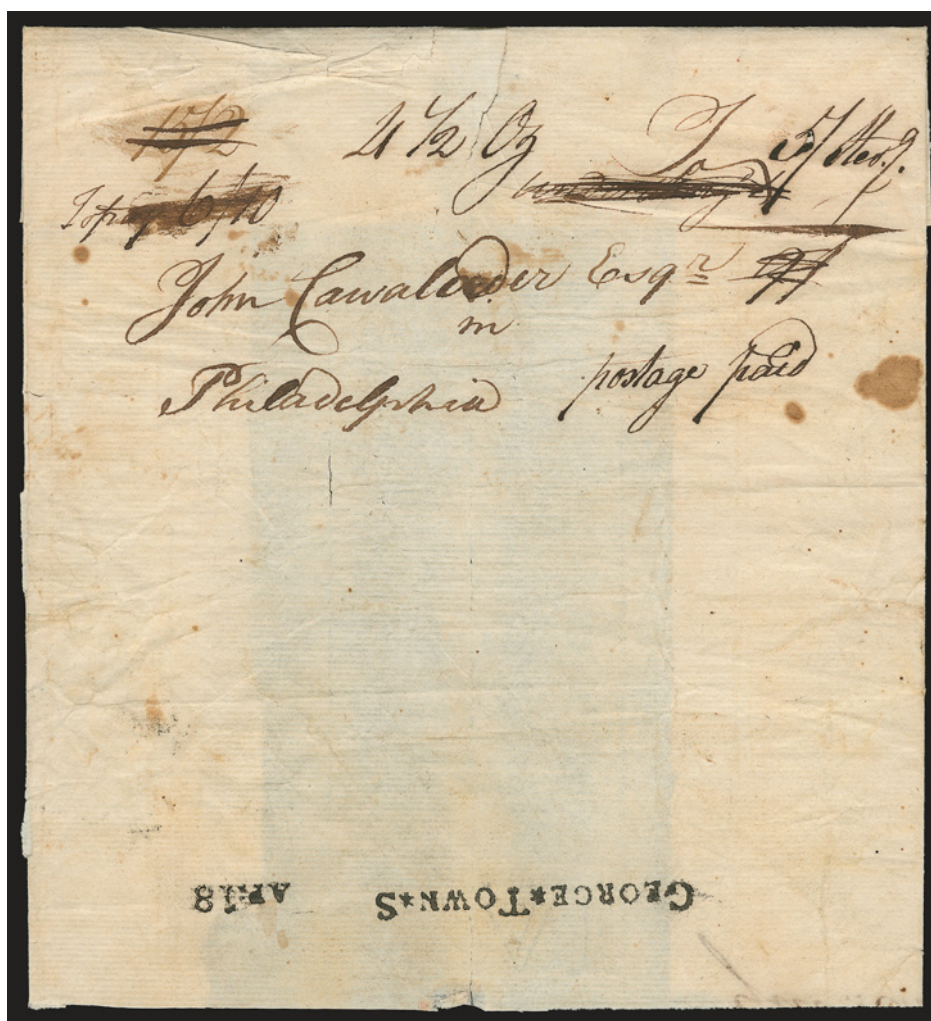 15/2 4 1/2 Oz To 5/ Ster.g.
To pay 6/10
John Cawaleder Esqr
in
Philadelphia postage paid
GEORGE*TOWN*S AP:18